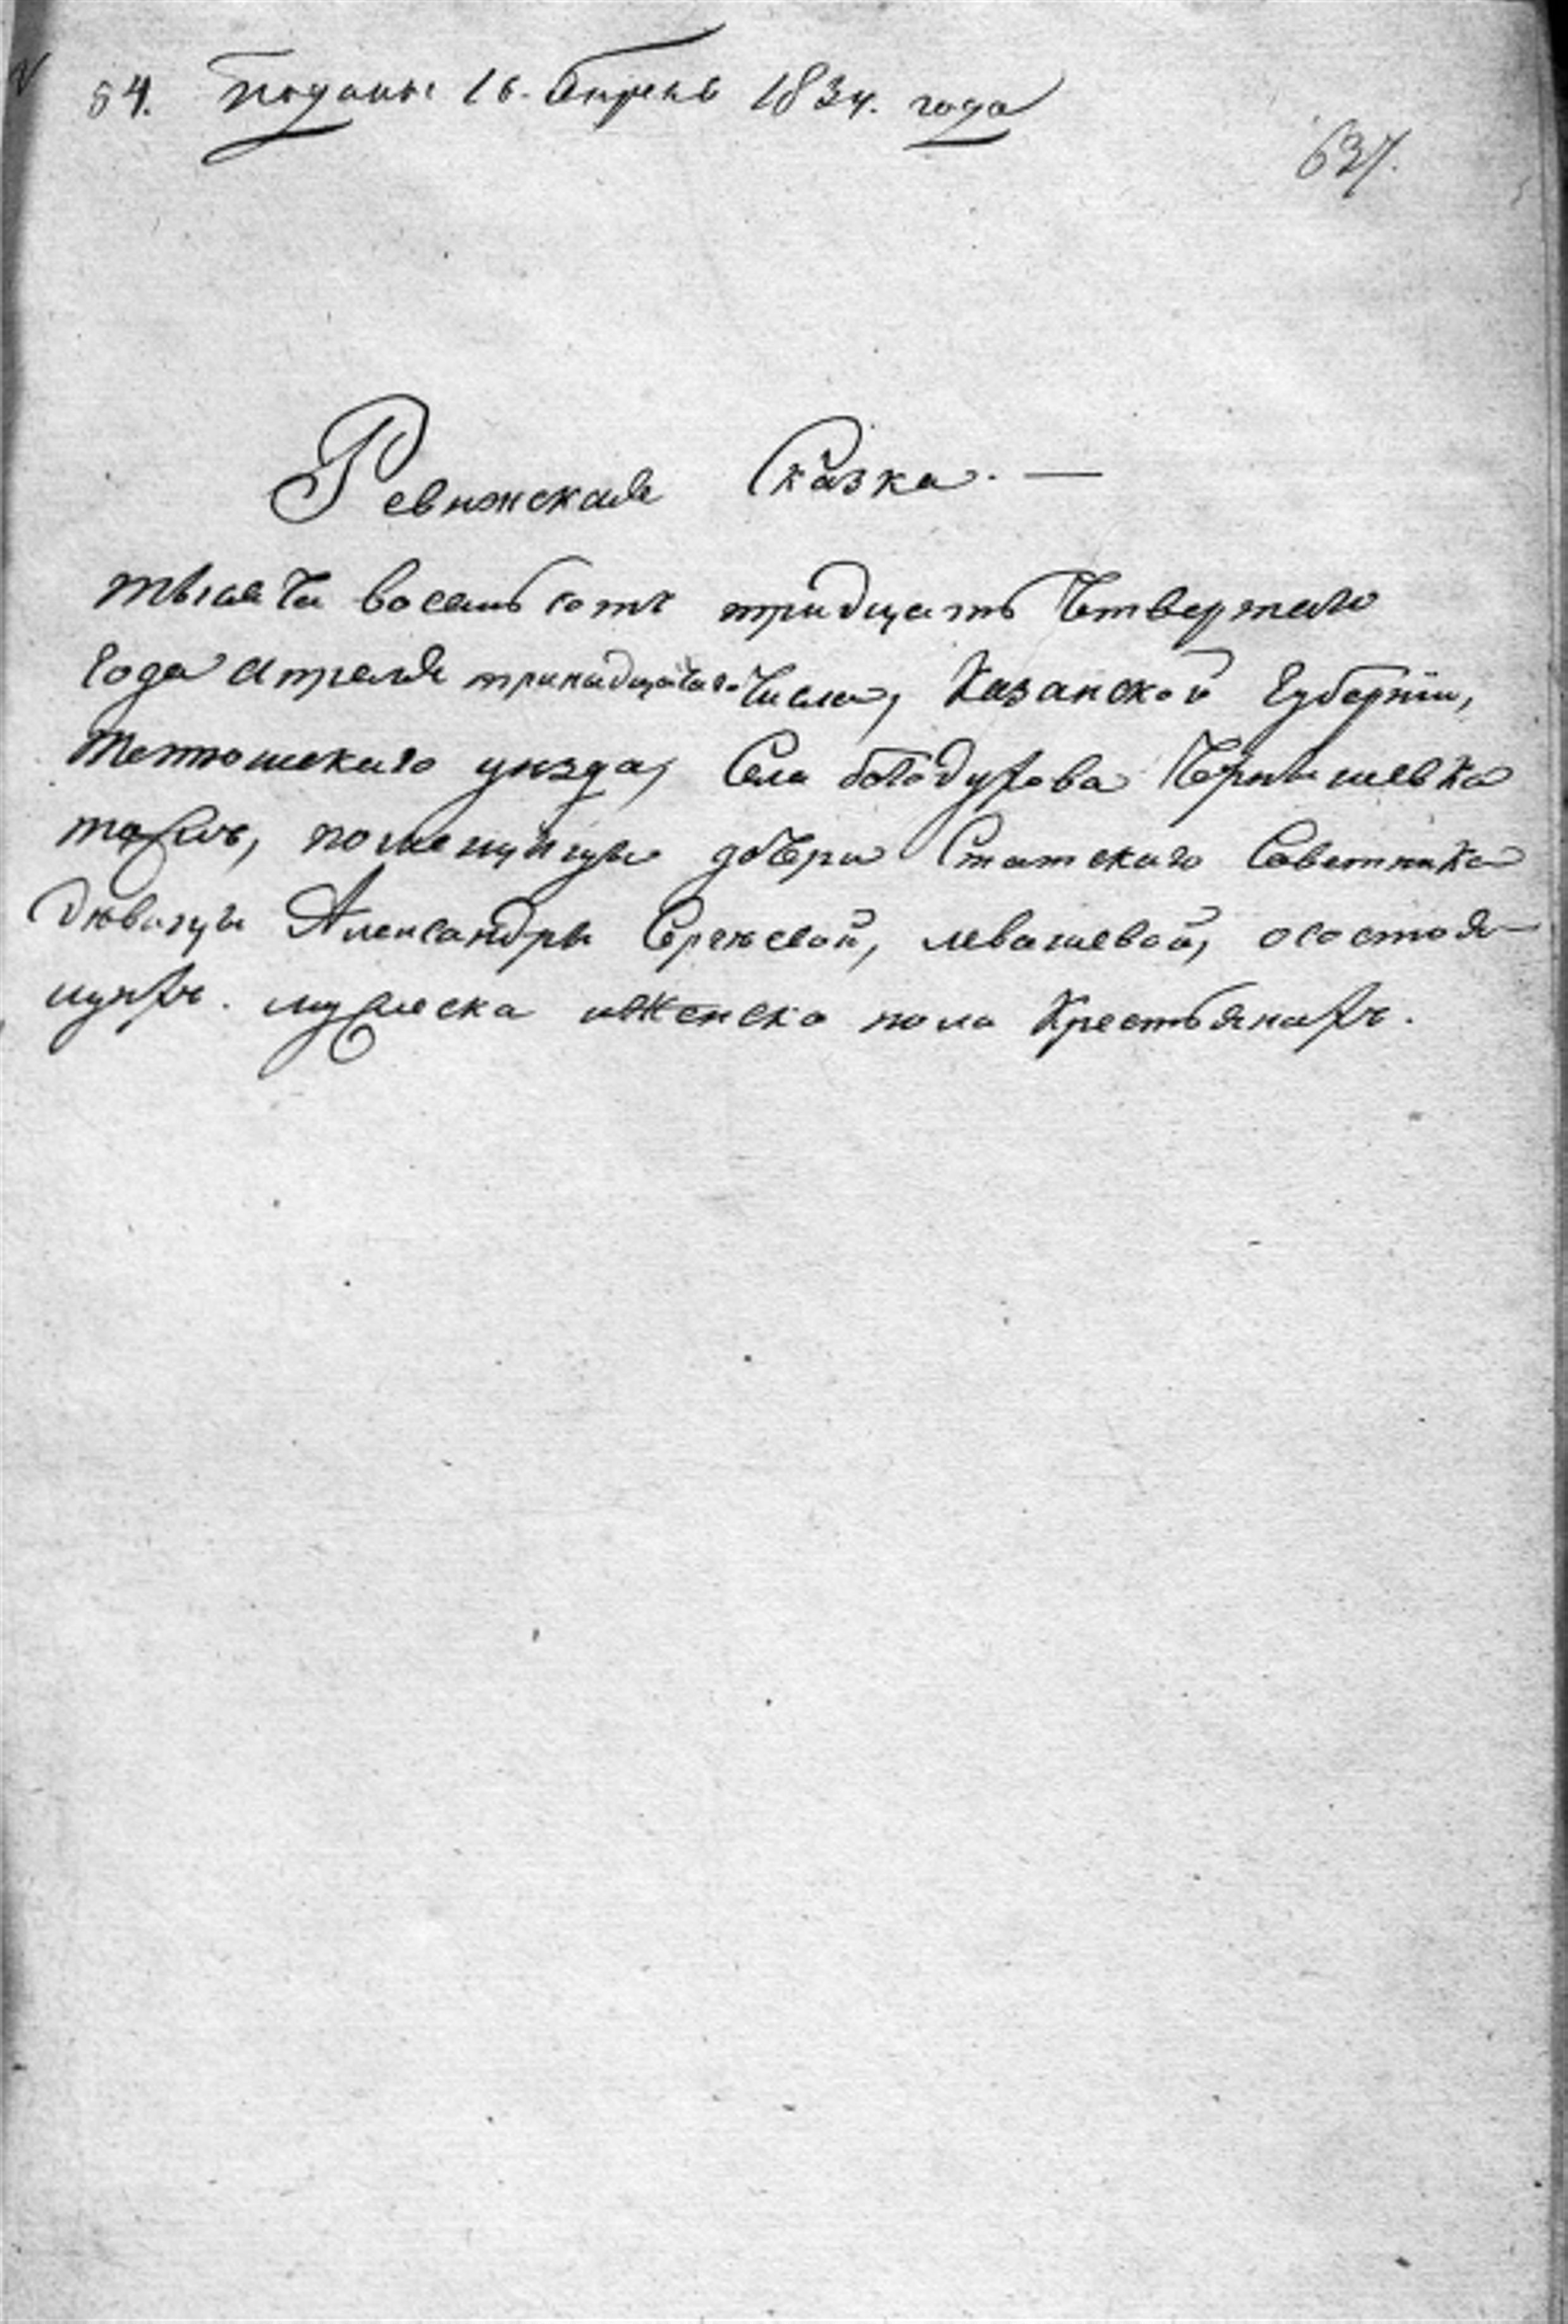 54. Поданы 16. Апреля 1834. года
637.
Ревижская Сказка. —
тысяча восемь сотъ тридцать Четвертаго
Года апреля тринадцатаго числа, Казанской Губерніи,
тетюшскаго уизда, Села богодухова Чернышевка
тожъ, помещицы дочери Статскаго Советника
Дивицы Александры Сергиевой, левашевой, осостоя-
щихъ. мужеска иженска пола Крестьянахъ.